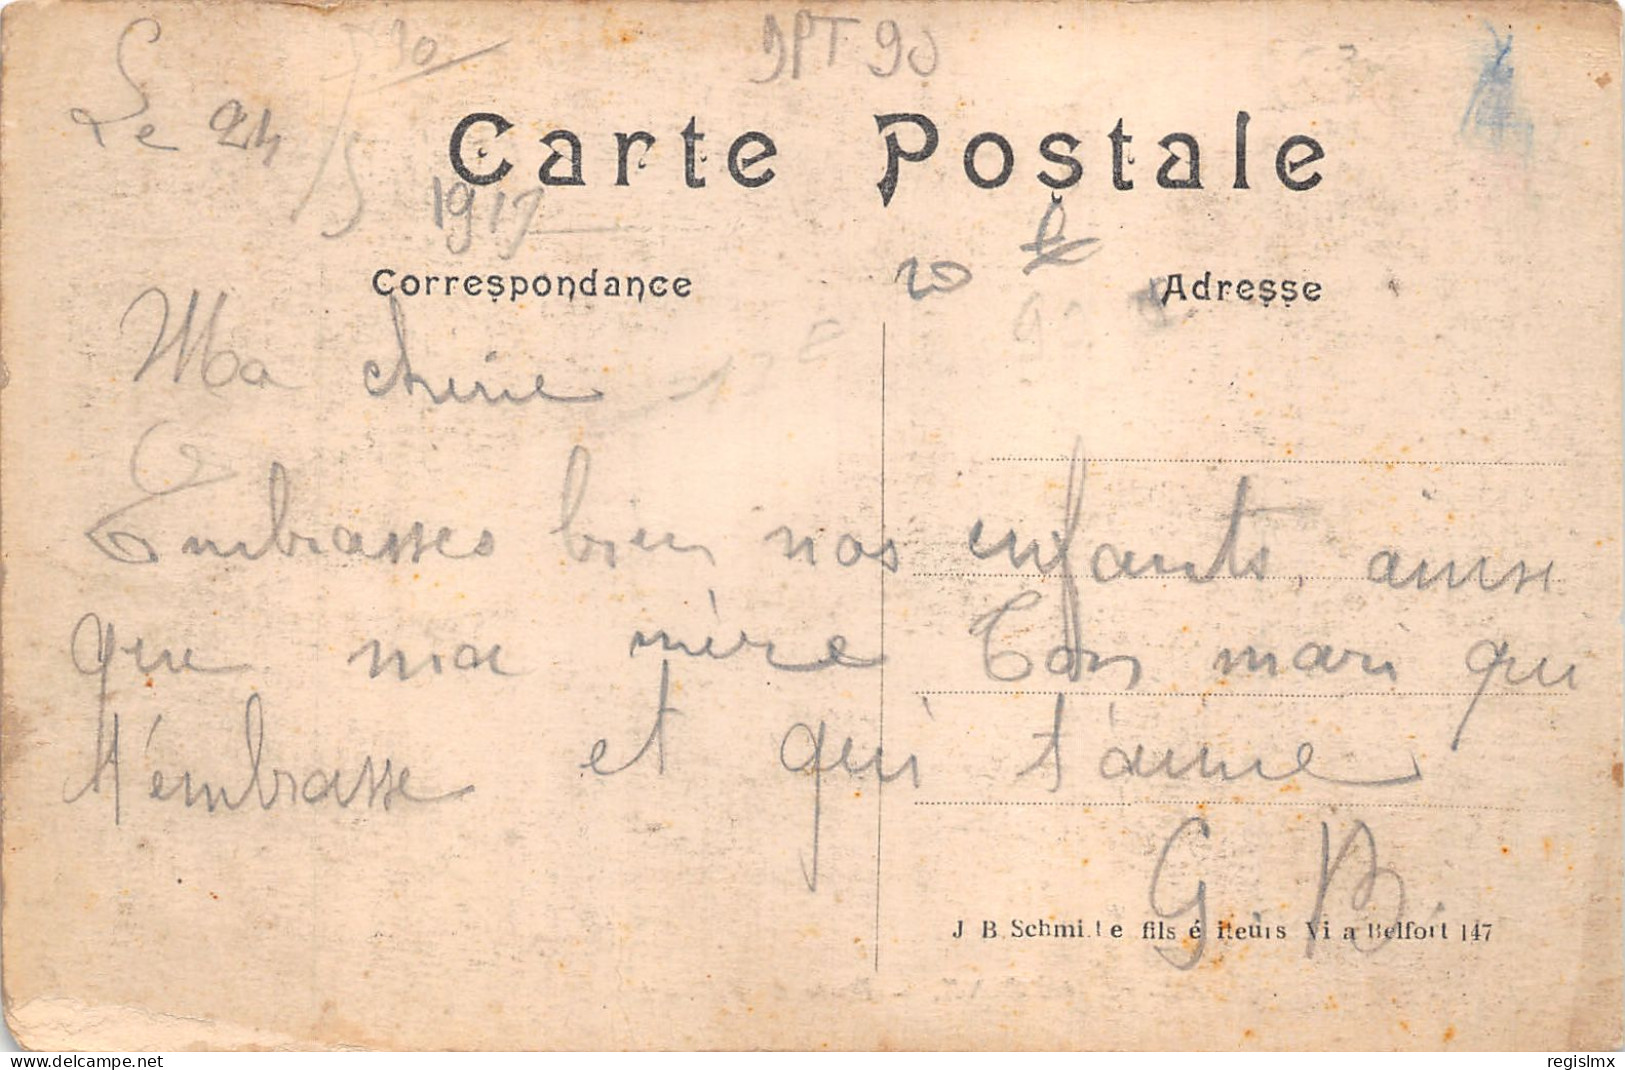 Le 24/5 1917
9PT90
Carte Postale
Correspondance
Adresse
Ma cherie
Embrasses bien nos enfants, ainse
que ma mère Ton mari qui
t'embrasse et qui t'aime
G B.
J B. Schmi t e fils é iteurs Vi a Belfort 147
delcampe.net
regislmx